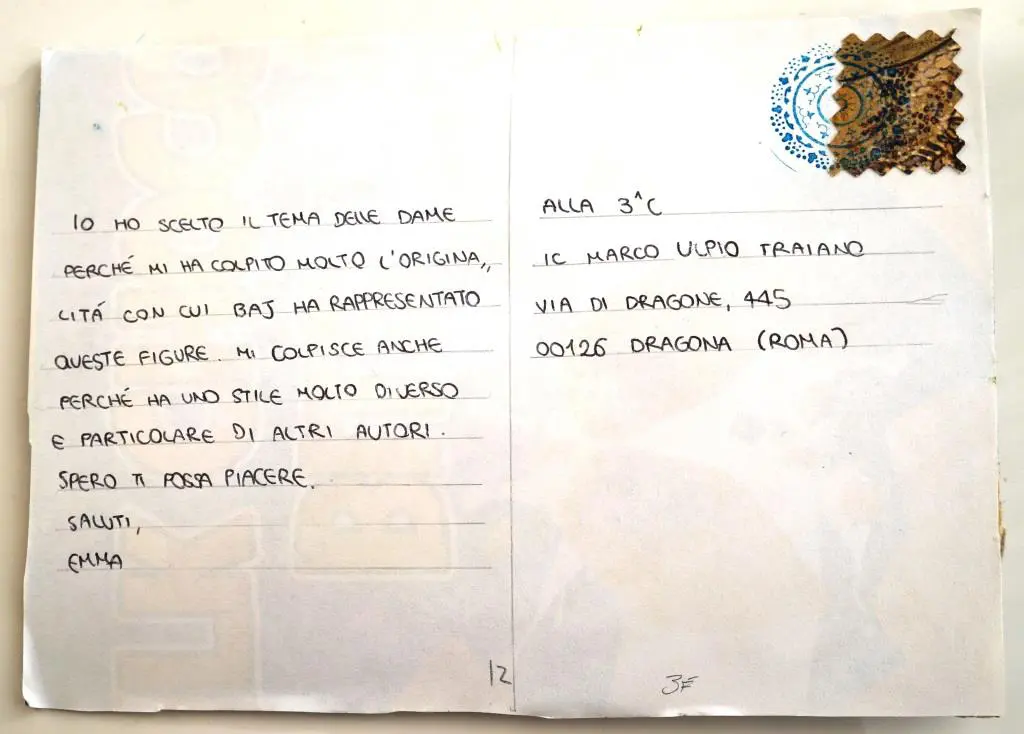 IO HO SCELTO IL TEMA DELLE DAME
PERCHÉ MI HA COLPITO MOLTO L'ORIGINA,,
LITÁ CON CUI BAJ HA RAPPRESENTATO
QUESTE FIGURE. MI COLPISCE ANCHE
PERCHÉ HA UNO STILE MOLTO DIVERSO
E PARTICOLARE DI ALTRI AUTORI.
SPERO TI POSSA PIACERE.
SALUTI,
EMMA
12
ALLA 3^C
IC MARCO ULPIO TRAIANO
VIA DI DRAGONE, 445
00126 DRAGONA (ROMA)
3E